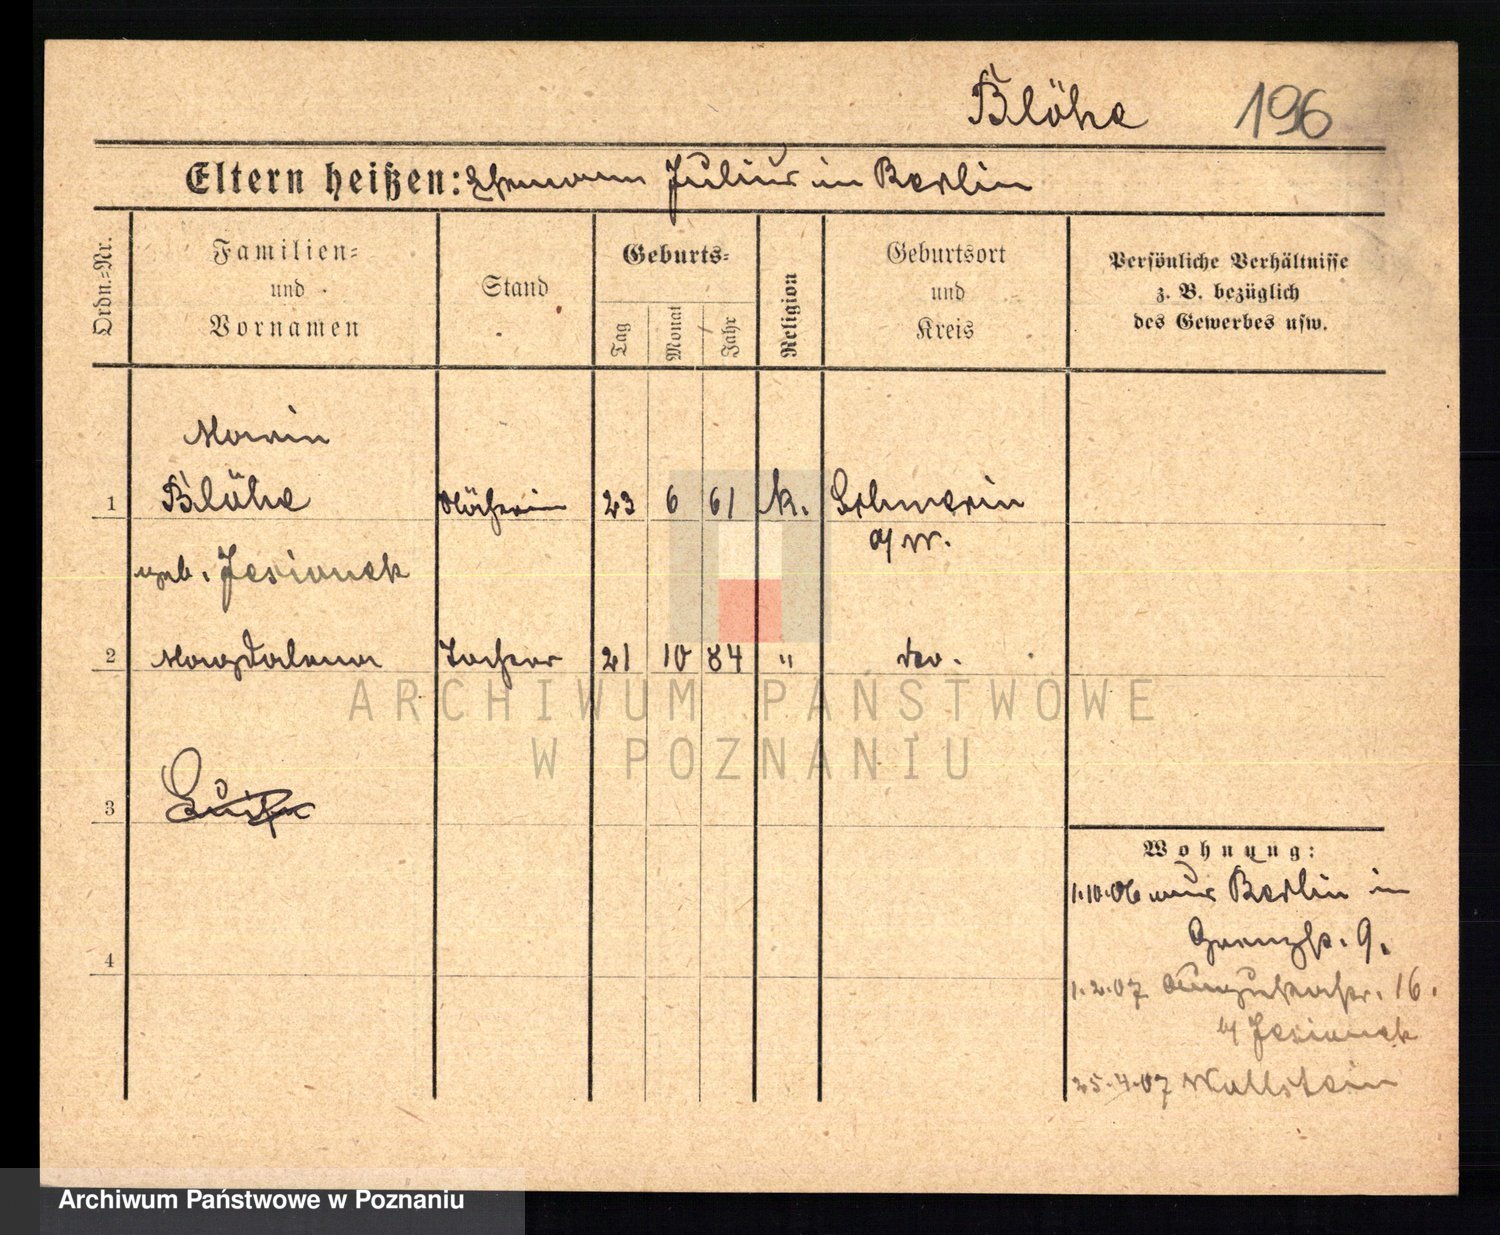 Blöhe 196
Eltern heißen: Ehemann Julius in Berlin
Ordn.-Nr.
Familien-
und
Vornamen
Stand
Geburts-
Tag
Monat
Jahr
Religion
Geburtsort
und
Kreis
Persönliche Verhältnisse
z. B. bezüglich
des Gewerbes usw.
Marie
1 Blöhe Näherin 23 6 61 k. Schwerin
a/W.
geb. Jesionek
2 Magdalena Tochter 21 10 84 " do.
3
4
Wohnung:
1.10.06 aus Berlin in
Grenzstr. 9.
1.2.07 Augustastr. 16.
b/ Jesionek
25.4.07 Wollstein
ARCHIWUM PAŃSTWOWE
W POZNANIU
Archiwum Państwowe w Poznaniu